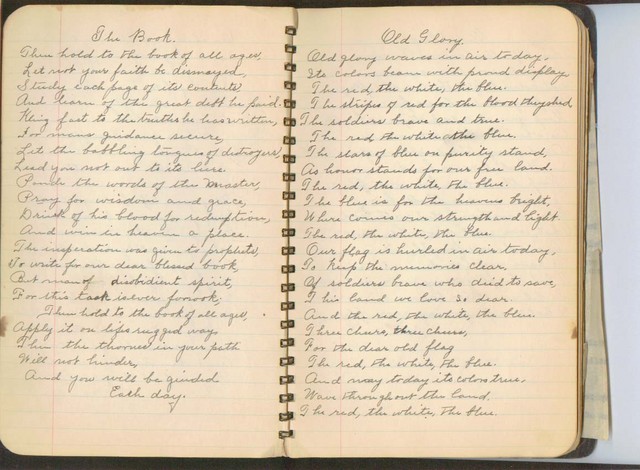 The Book.
Then hold to the book of all ages,
Let not your faith be dismayed,
Study each page of its contents,
And learn of the great debt he paid.
Kling fast to the truths he has written,
For mans guidance secure,
Let the babbling tongues of destroyers,
Lead you not out to its lure.
Ponde the words of the Master,
Pray for wisdom and grace,
Drink of his blood for redemption,
And win in heaven a place.
The insperation was given to prophets,
To write for our dear blessed book,
But man of disobidient spirit,
For this task is ever forsook;
Then hold to the book of all ages,
Apply it on lifes rugged way
Then the thornes in your path
Will not hinder,
And you will be guided
Each day.
Old Glory.
Old glory waves in air to day,
Its colors beam with proud display
The red, the white, the blue.
The stripes of red for the blood they shed
The soldiers brave and true.
The red the white the blue.
The stars of blue on purity stand,
As honor stands for our free land.
The red, the white, the blue.
The blue is for the heavens bright,
Where comes our strength and light
The red, the white, the blue.
Our flag is hurled in air to day,
To keep the memories clear,
Of soldiers brave who died to save,
This land we love so dear.
And the red, the white, the blue.
Three cheers, three cheers,
For the dear old flag
The red, the white, the blue.
And may to day its colors true,
Wave through out the land.
The red, the white, the blue.